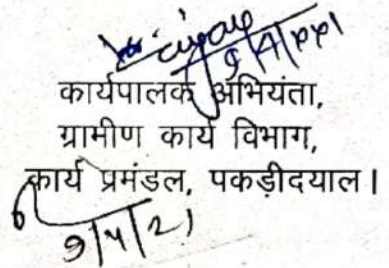 कार्यपालक अभियंता,
ग्रामीण कार्य विभाग,
कार्य प्रमंडल, पकड़ीदयाल।
9/4/21